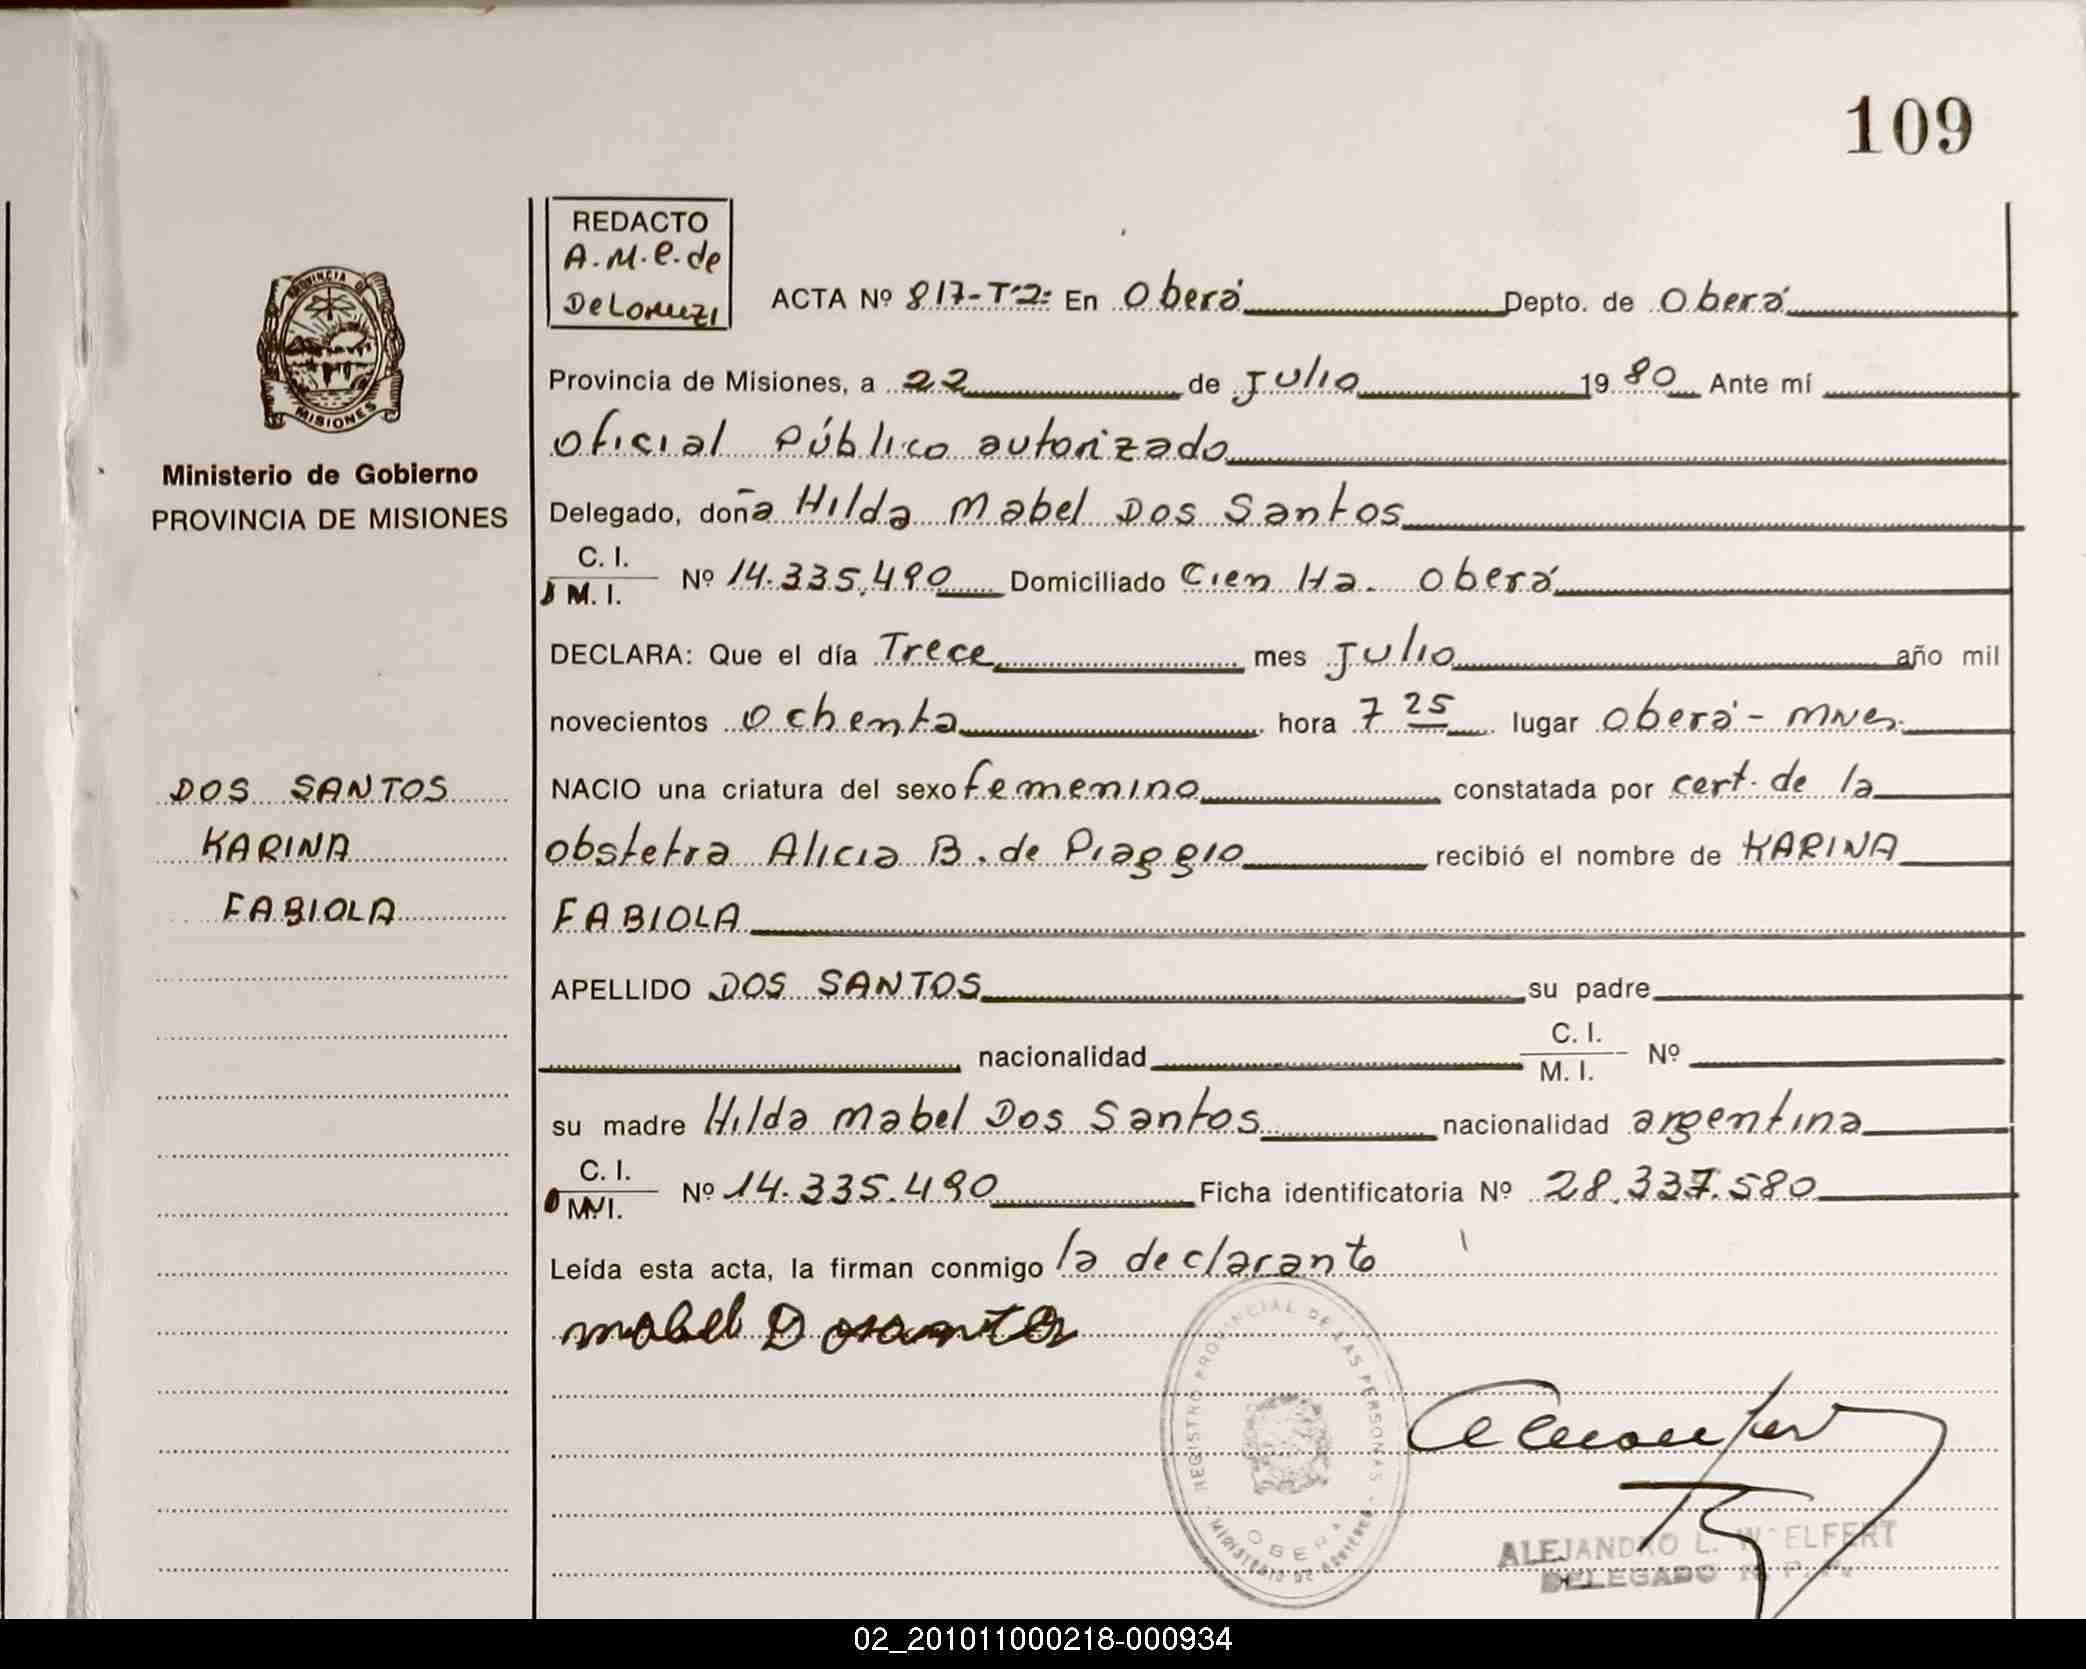 109
REDACTO
A.M.e.de
DeLoruzi
PROVINCIA DE
MISIONES
Ministerio de Gobierno
PROVINCIA DE MISIONES
ACTA Nº 817-Tº2: En Oberá Depto. de Oberá
Provincia de Misiones, a 22 de Julio 1980 Ante mí
oficial Público autorizado
Delegado, doña Hilda Mabel Dos Santos
C. I.
M. I. Nº 14.335.490 Domiciliado Cien Ha. Oberá
DECLARA: Que el día Trece mes Julio año mil
novecientos Ochenta hora 7 25 lugar Oberá - Mnes.
NACIO una criatura del sexo femenino constatada por cert. de la
obstetra Alicia B. de Piaggio recibió el nombre de KARINA
FABIOLA
DOS SANTOS
KARINA
FABIOLA
APELLIDO DOS SANTOS su padre
nacionalidad C. I.
M. I. Nº
su madre Hilda Mabel Dos Santos nacionalidad argentina
C. I.
M.I. Nº 14.335.490 Ficha identificatoria Nº 28.337.580
Leída esta acta, la firman conmigo la declarante
mabel D
REGISTRO PROVINCIAL DE LAS PERSONAS
OBERA
MINISTERIO DE
ALEJANDRO L. WOELFERT
DELEGADO
02_201011000218-000934